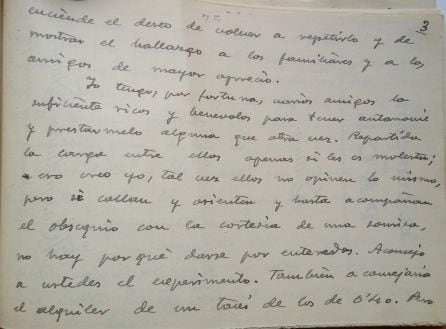 3
enciende el deseo de volver a repetirlo y de
mostrar el hallazgo a los familiares y a los
amigos de mayor aprecio.
Yo tengo, por fortuna, varios amigos lo
suficiente ricos y benevolos para tener automovil
y prestarmelo alguna que otra vez. Repartida
la carga entre ellos apenas si les es molesta;
eso creo yo, tal vez ellos no opinen lo mismo,
pero si callan y asienten y hasta acompañan
el obsequio con la cortesia de una sonrisa,
no hay por qué darse por enterados. Aconsejo
a ustedes el experimento. Tambien aconsejaria
el alquiler de un taxi de los de 0'40. Pero